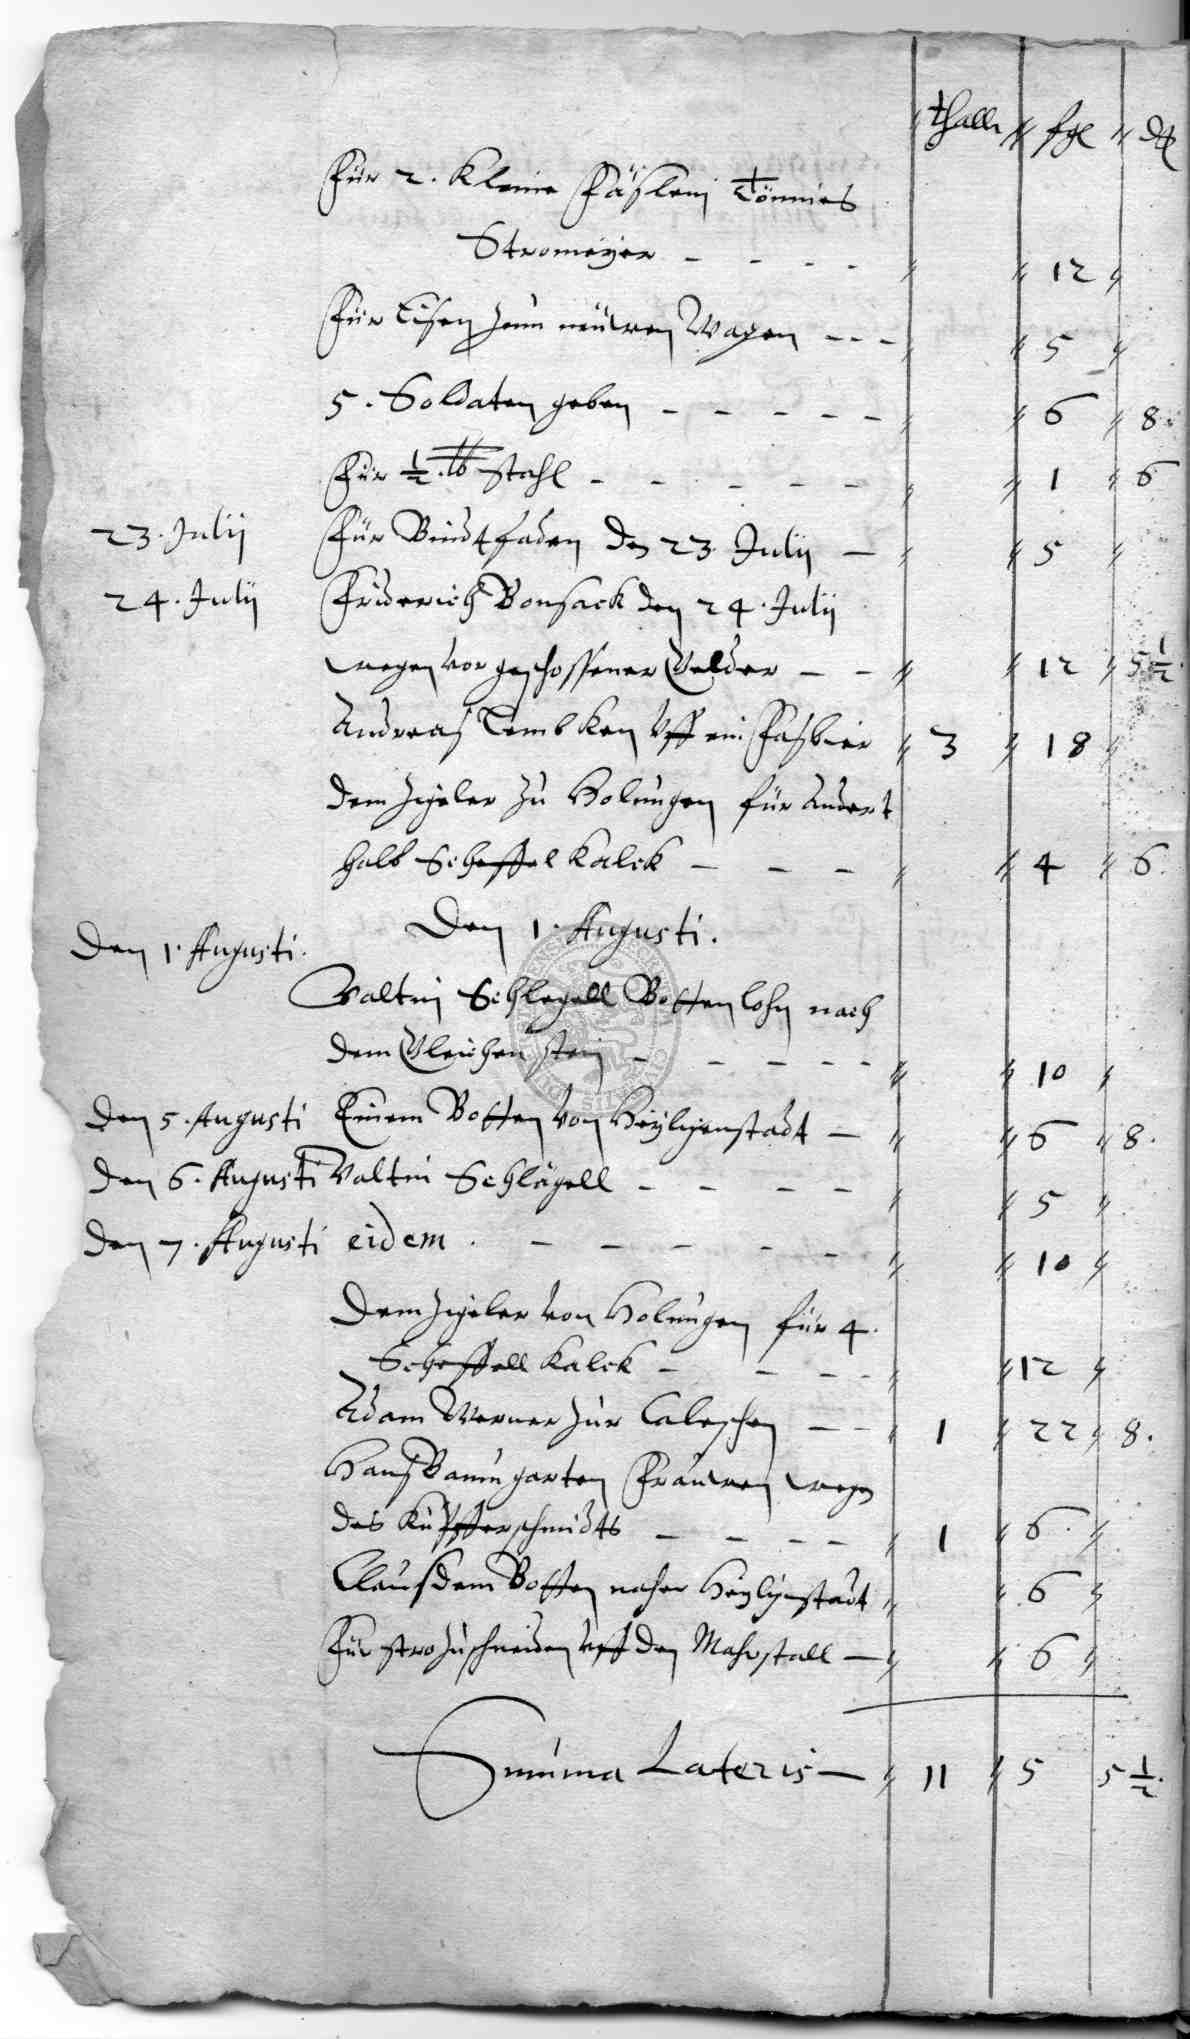 thaler fgl ₰
Für 2. kleine Fäslein Tönnies
Stromeyer - - - - 12
Für Eisen zum neuwen Wagen - - - 5
5. Soldaten geben - - - - - 6 8.
Für ½ lb stahl - - - - - 1 6
23. Julij Für Bindtfaden den 23. Julij - 5
24. Julij Friderich Bonsack den 24. Julij
wegen vorgeschossener Gelder - - 12 5½.
Andreas Lembken vff ein Fasbier 3 18
dem Zigeler zu Holungen für andert
halb Scheffel Kalck - - - 4 6.
Den 1. Augusti.
Den 1. Augusti.
Valtin Schlegell Bottenlohn nach
dem Gleichenstein - - - - - 10
Den 5. Augusti Einem Botten von Heyligenstadt - 6 8.
Den 6. Augusti Valtin Schlägell - - - - 5
Den 7. Augusti eidem. - - - - - 10
Dem Zigeler von Holungen für 4.
Scheffell Kalck - - - - 12
Adam Werner zur Caleschen - - 1 22 8.
Hans Baumgarten Frauwen wegen
des Kupfferschmidts - - - - 1 6.
Claus dem Botten naher Heyligenstadt 6
Für stro zuschneiden vff den Mahrstall - 6
Summa Lateris - 11 5 5½.